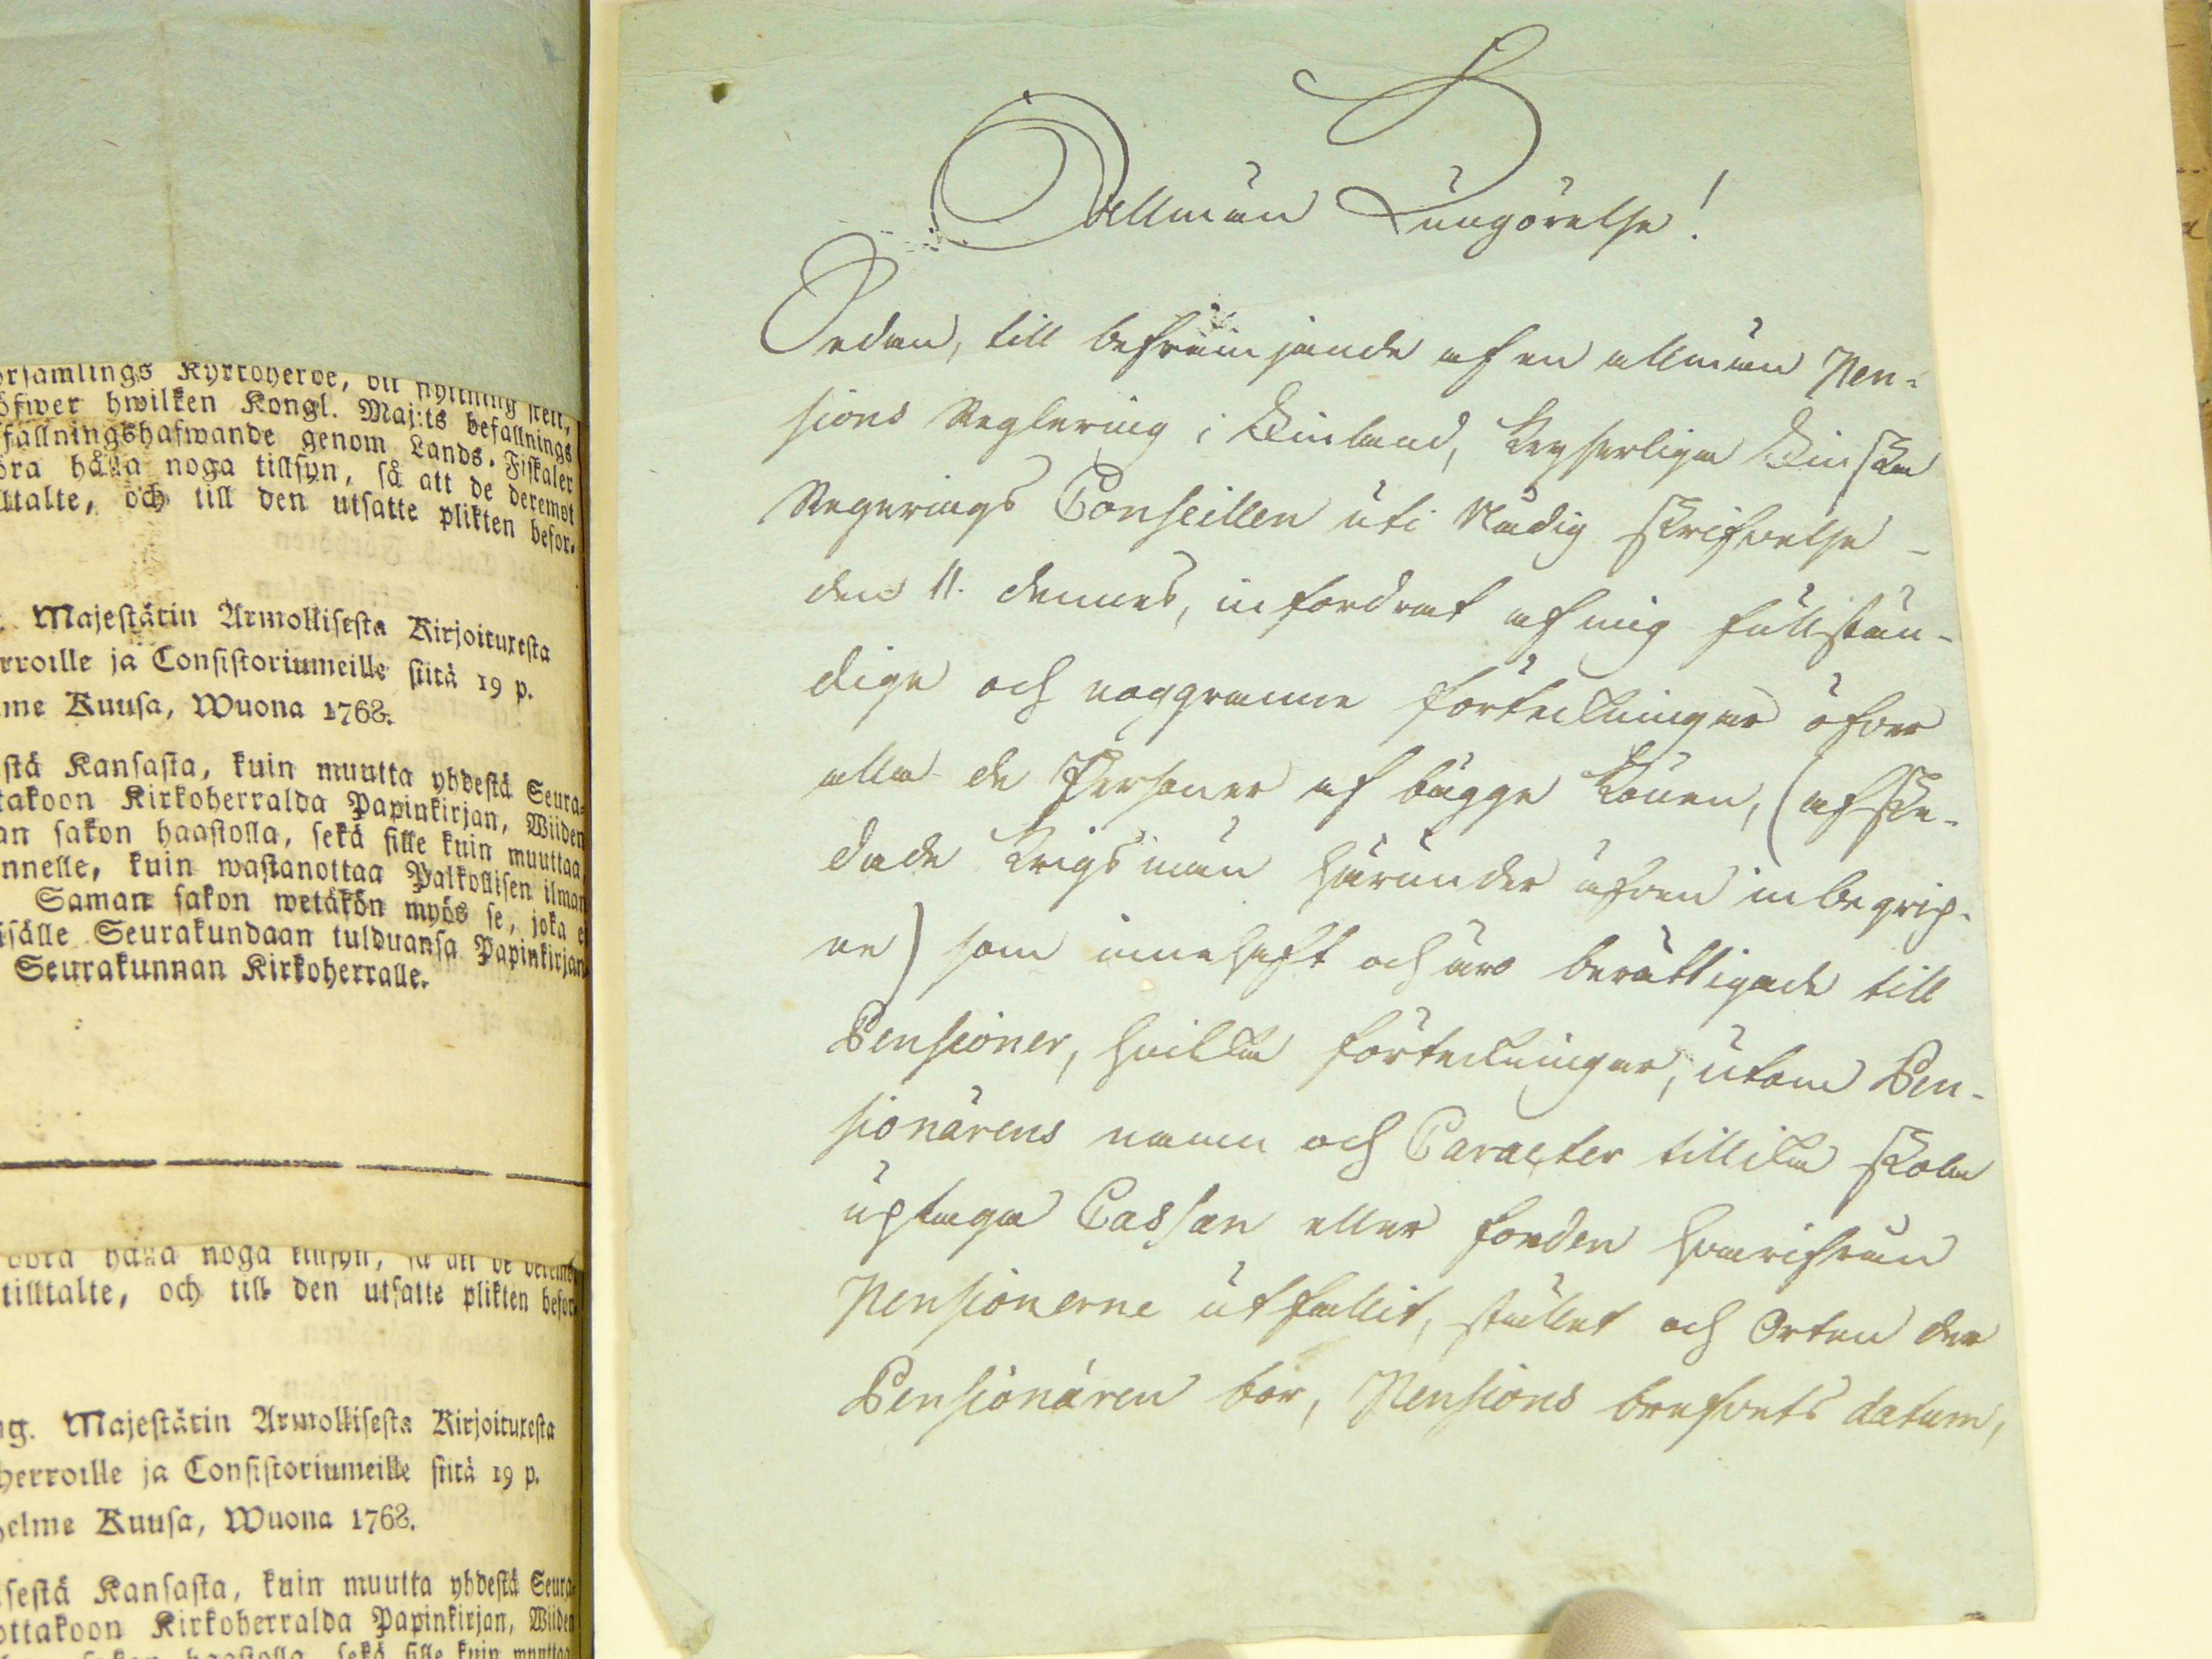 örsamlings Kyrkoherde, vit flyttning skett,
öfwer hwilken Kongl. Maj:ts befallnings
fallningshafwande genom Lands-Fiskaler
öra hålla noga tillsyn, så att de deremot
lltalte, och till den utsatte plikten befor-
. Majestätin Armollisesta Kirjoituxesta
rroille ja Consistoriumeille siitä 19 p.
me Kuusa, Wuona 1768.
stä Kansasta, kuin muutta yhdestä Seura-
takoon Kirkoherralda Papinkirjan, Wiiden
an sakon haastolla, sekä sille kuin muuttaa,
nnelle, kuin wastanottaa Palkollisen ilman
Saman sakon wetäkön myös se, joka e
isälle Seurakundaan tulduansa Papinkirjan
Seurakunnan Kirkoherralle.
öra hålla noga tillsyn, så att de deremot
tilltalte, och till den utsatte plikten befor-
ng. Majestätin Armollisesta Kirjoituxesta
herroille ja Consistoriumeille siitä 19 p.
helme Kuusa, Wuona 1768.
sestä Kansasta, kuin muutta yhdestä Seura-
ottakoon Kirkoherralda Papinkirjan, Wiiden
sakon haastolla, sekä sille kuin muuttaa
Allmän Kungörelse!
Sedan, till befrämjande af en allmän Pen-
sions Reglering i Finland, Keyserliga Finska
Regerings Conseillen uti Nådig skrifvelse
den 11. dennes, infordrat af mig fullstän-
dige och noggranne förteckningar öfver
alla de Personer af bägge Könen, (afske-
dade Krigsmän härunder äfven inbegrip-
ne) som innehaft och äro berättigade till
Pensioner, hvilka förteckningar, utom Pen-
sionärens namn och Caracter tillika skola
uptaga Cassan eller fonden hvarifrån
Pensionerne utfallit, stället och Orten der
Pensionären bor, Pensions brefvets datum,